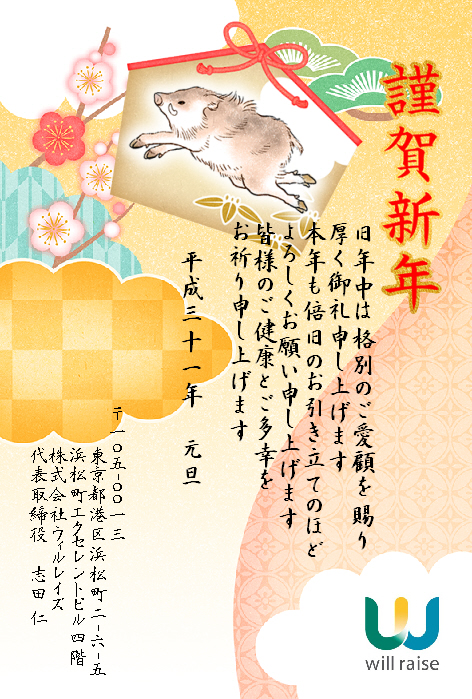 謹賀新年
旧年中は格別のご愛顧を賜り
厚く御礼申し上げます
本年も倍旧のお引き立てのほど
よろしくお願い申し上げます
皆様のご健康とご多幸を
お祈り申し上げます
平成三十一年 元旦
〒一〇五-〇〇一三
東京都港区浜松町二-六-五
浜松町エクセレントビル四階
株式会社ウィルレイズ
代表取締役 志田 仁
will raise